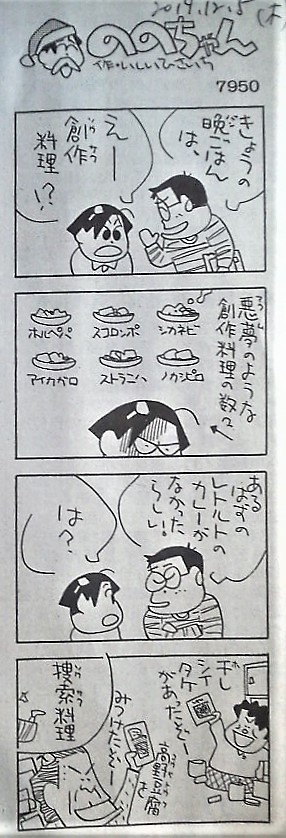 2019.12.5(木)
ののちゃん
作・いしいひさいち
7950
きょうの
晩ごはん
は、
えー
創作
料理!?
悪夢のような
創作料理の数々
ホルペペパ
スコロンポ
シカネビ
アイカガロ
ストラニハ
ノカシピロ
ある
はずの
レトルトの
カレーが
なかった
らしい!
は?
干し
シイ
タケ
があったぞー
高野豆腐
を
みつけたぞー
捜索料理